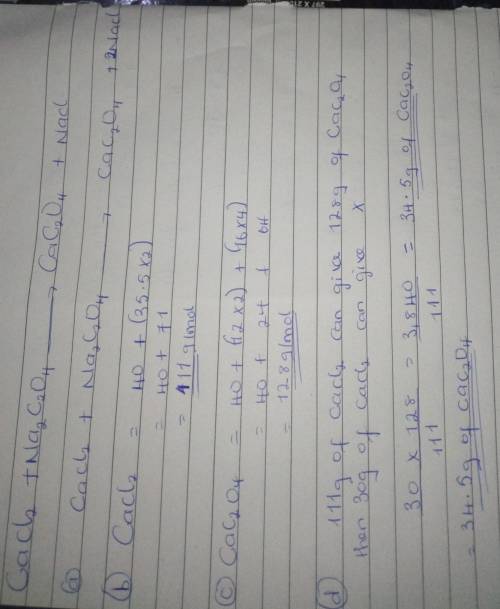 CaCl₂ + Na₂C₂O₄ ⟶ CaC₂O₄ + NaCl
(a) CaCl₂ + Na₂C₂O₄ ⟶ CaC₂O₄ + 2NaCl
(b) CaCl₂ = 40 + (35.5x2)
= 40 + 71
= 111g/mol
(c) CaC₂O₄ = 40 + (12x2) + (16x4)
= 40 + 24 + 64
= 128g/mol
(d) 111g of CaCl₂ can give 128g of CaC₂O₄
then 30g of CaCl₂ can give X
30 x 128 = 3,840 = 34.5g of CaC₂O₄
111 111
= 34.5g of CaC₂O₄